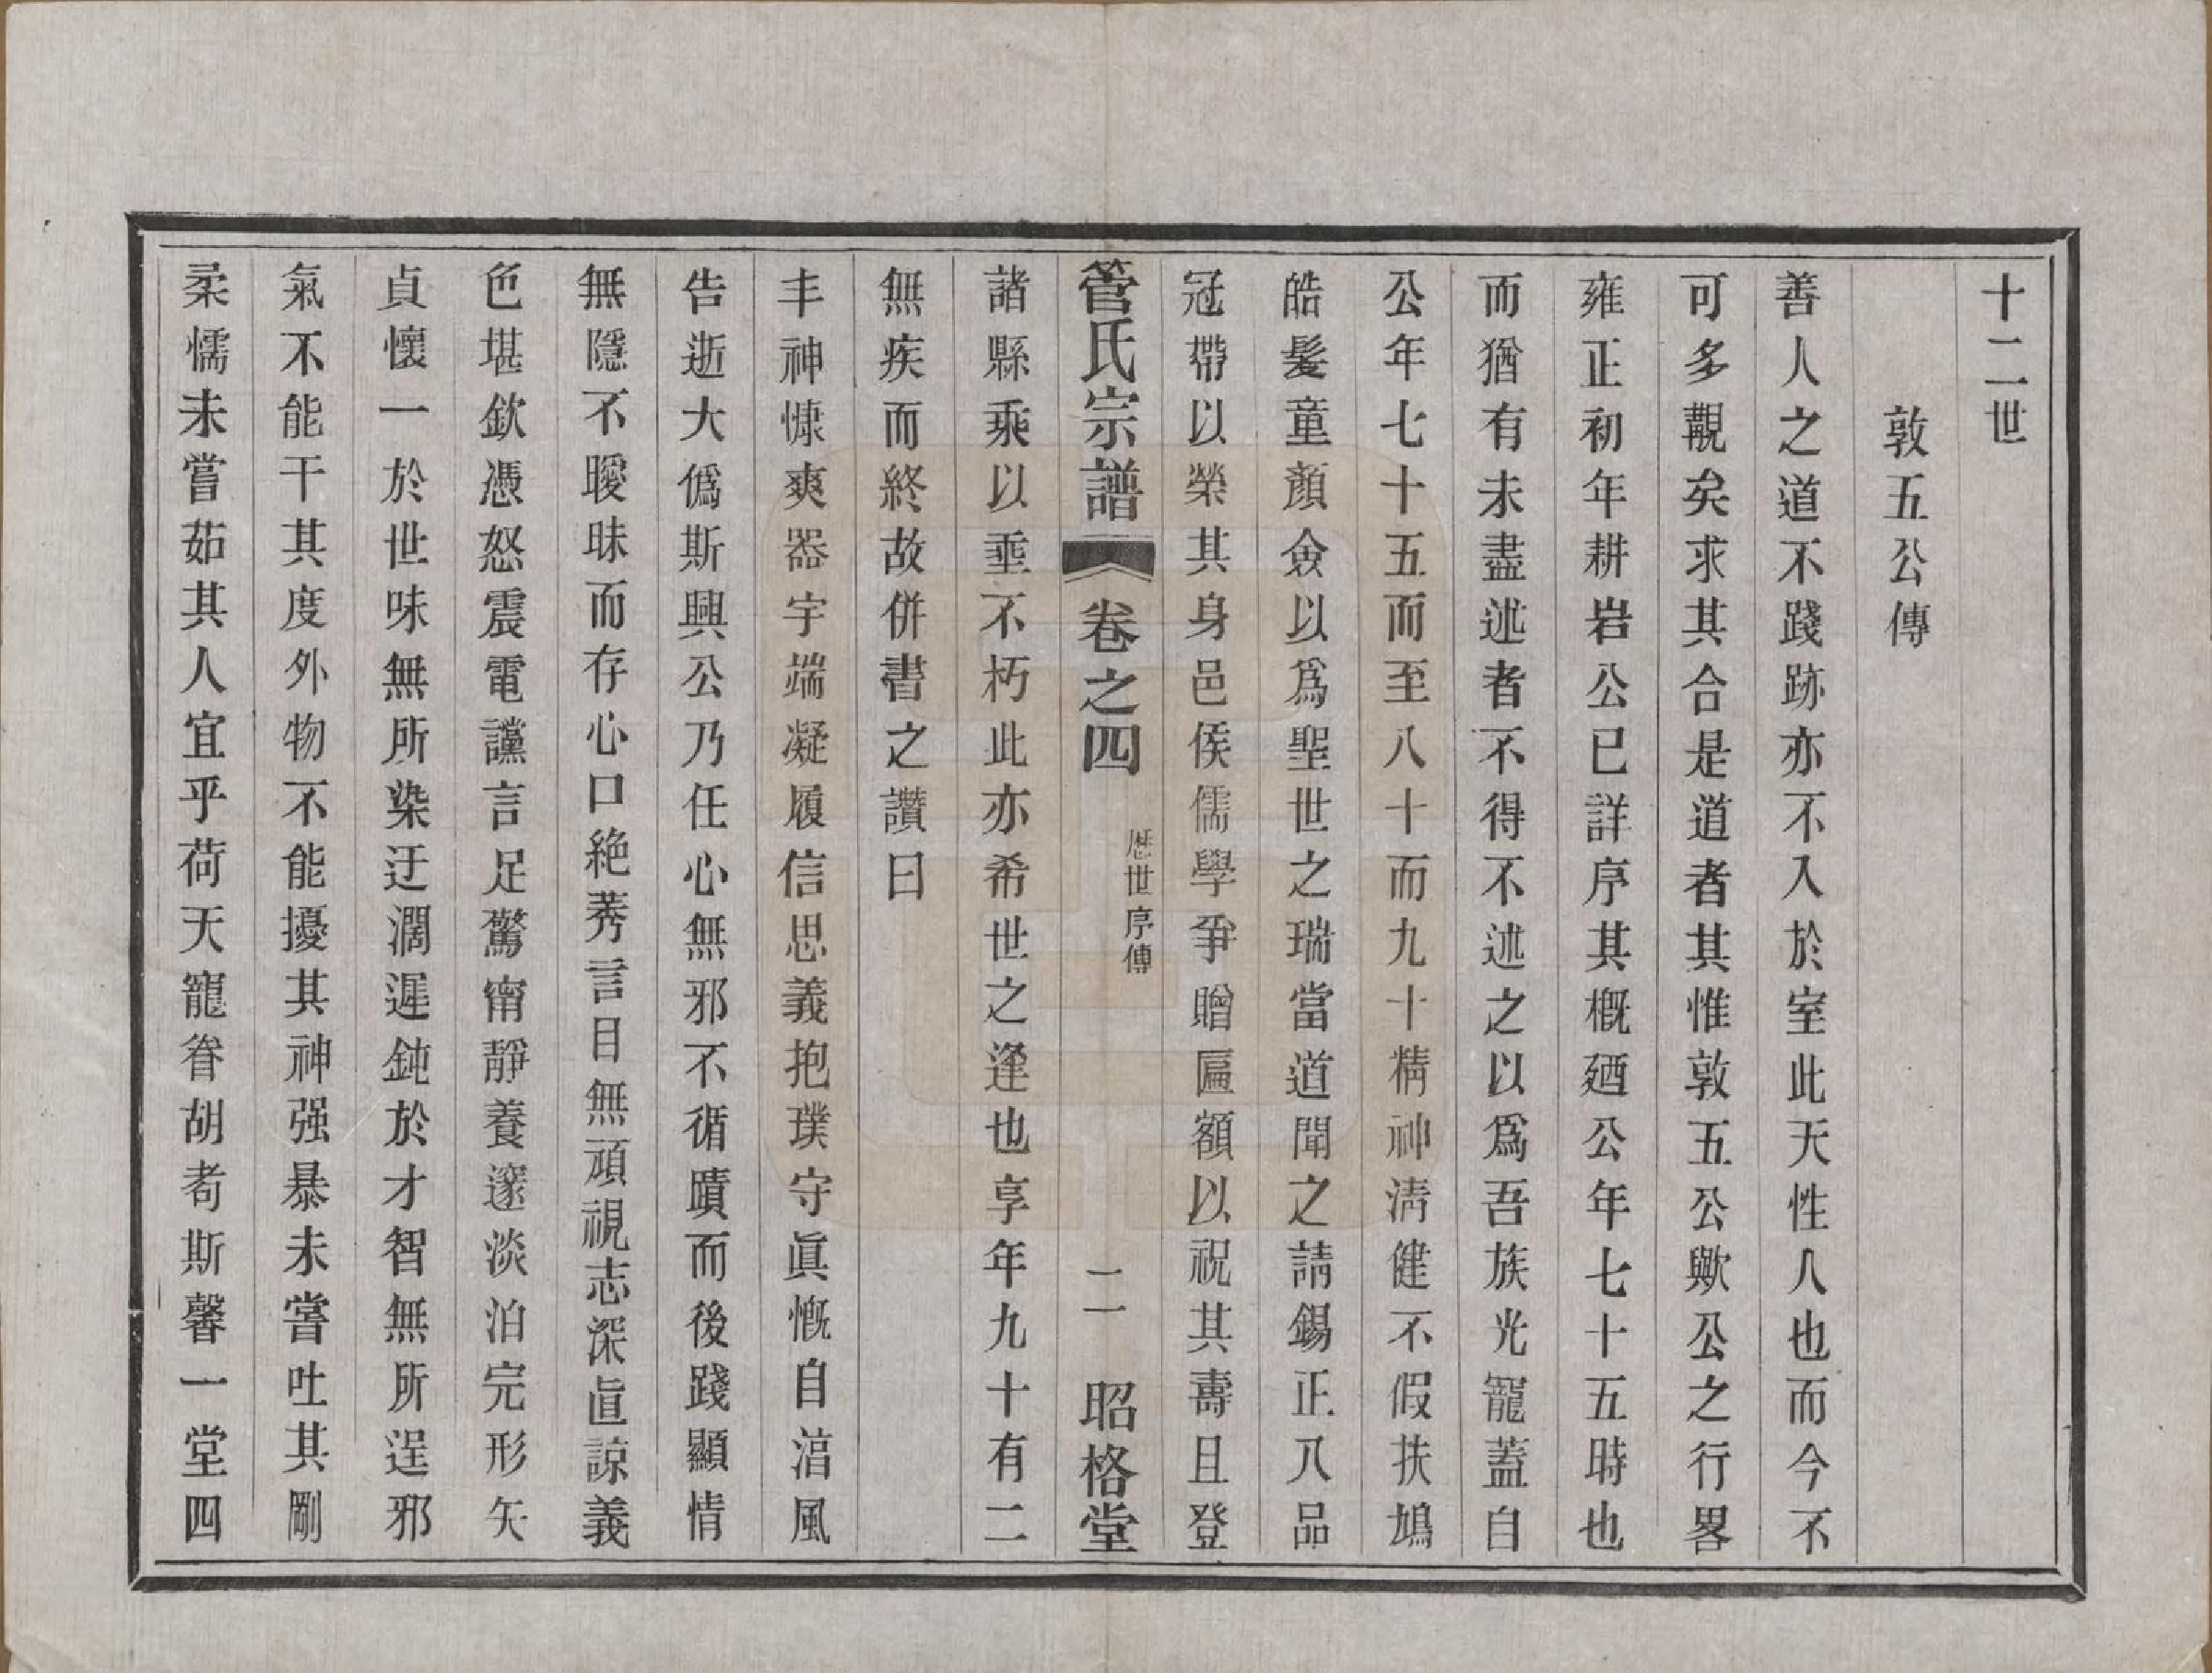 十二世
敦五公傳
善人之道不踐跡亦不入於室此天性人也而今不
可多觀矣求其合是道者其惟敦五公歟公之行畧
雍正初年耕岩公已詳序其概廼公年七十五時也
而猶有未盡述者不得不述之以爲吾族光寵蓋自
公年七十五而至八十而九十精神淸健不假扶鳩
皓髮童顏僉以爲聖世之瑞當道聞之請錫正八品
冠帶以榮其身邑侯儒學爭贈匾額以祝其壽且登
管氏宗譜 卷之四 歷世序傳 二 昭格堂
諸縣乘以埀不朽此亦希世之逢也享年九十有二
無疾而終故併書之讚曰
丰神慷爽器宇端凝履信思義抱璞守眞慨自澆風
告逝大僞斯興公乃任心無邪不循蹟而後踐顯情
無隱不曖昧而存心口絶莠言目無頑視志深直諒義
色堪欽憑怒震電讜言足驚甯靜養邃淡泊完形矢
貞懷一於世味無所染迂濶遲鈍於才智無所逞邪
氣不能干其度外物不能擾其神强暴未嘗吐其剛
柔懦未嘗茹其人宜乎荷天寵眷胡耇斯馨一堂四